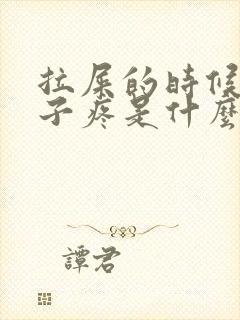 拉屎的時候
子疼是什麼
譚君